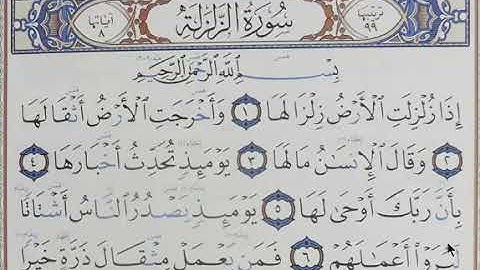 ترتيبها ٩٩ سُورَةُ الزَّلْزَلَةِ آياتها ٨
بِسْمِ ٱللَّهِ ٱلرَّحْمَٰنِ ٱلرَّحِيمِ
إِذَا زُلْزِلَتِ ٱلْأَرْضُ زِلْزَالَهَا ١ وَأَخْرَجَتِ ٱلْأَرْضُ أَثْقَالَهَا
٢ وَقَالَ ٱلْإِنسَٰنُ مَا لَهَا ٣ يَوْمَئِذٍ تُحَدِّثُ أَخْبَارَهَا ٤
بِأَنَّ رَبَّكَ أَوْحَىٰ لَهَا ٥ يَوْمَئِذٍ يَصْدُرُ ٱلنَّاسُ أَشْتَاتًا
لِّيُرَوْا۟ أَعْمَٰلَهُمْ ٦ فَمَن يَعْمَلْ مِثْقَالَ ذَرَّةٍ خَيْرًا